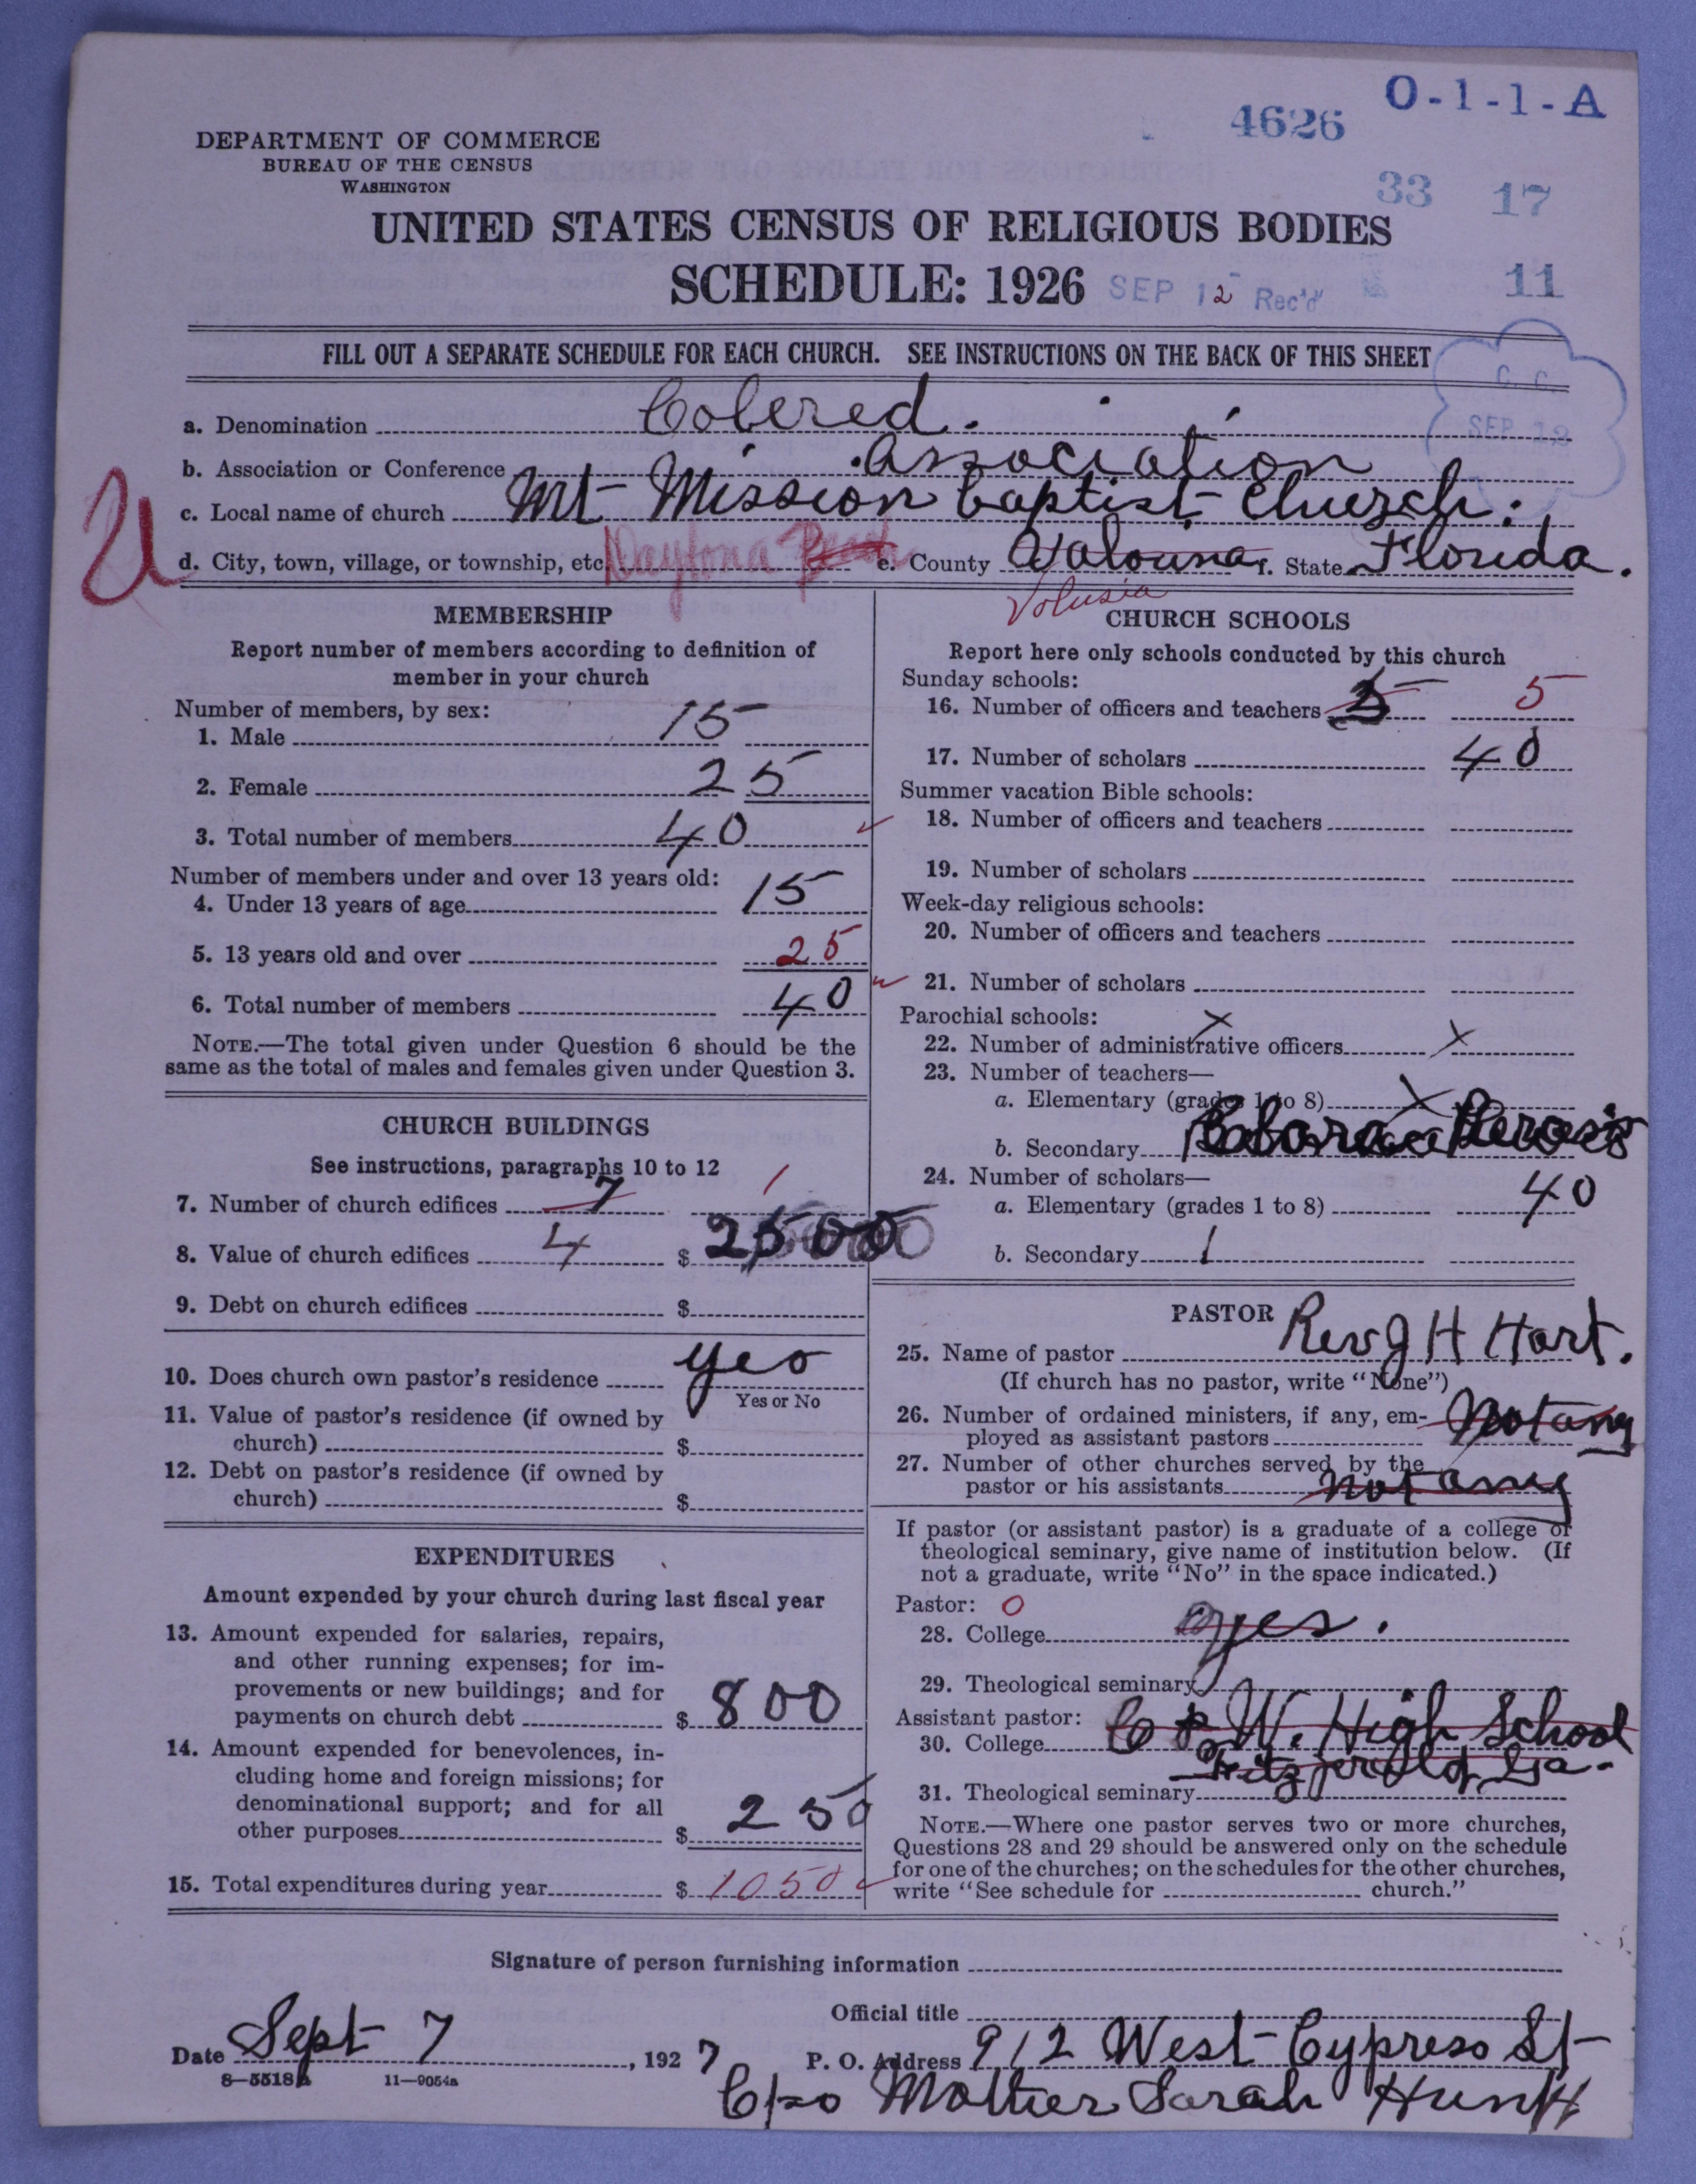 O-1-1-A
4626
DEPARTMENT OF COMMERCE
BUREAU OF THE CENSUS
WASHINGTON
33 17
UNITED STATES CENSUS OF RELIGIOUS BODIES
SCHEDULE: 1926 SEP 12 Rec'd 11
FILL OUT A SEPARATE SCHEDULE FOR EACH CHURCH. SEE INSTRUCTIONS ON THE BACK OF THIS SHEET
C. C.
SEP 12
a. Denomination Colered.
b. Association or Conference Association
c. Local name of church Mt Mission baptist Church.
d. City, town, village, or township, etc. Daytona Beach e. County Valouna f. State Florida.
Volusia
MEMBERSHIP
Report number of members according to definition of
member in your church
Number of members, by sex:
1. Male 15
2. Female 25
3. Total number of members 40
Number of members under and over 13 years old:
4. Under 13 years of age 15
5. 13 years old and over 25
6. Total number of members 40
NOTE.—The total given under Question 6 should be the
same as the total of males and females given under Question 3.
CHURCH BUILDINGS
See instructions, paragraphs 10 to 12
7. Number of church edifices 7 1
8. Value of church edifices 4 $ 2500
9. Debt on church edifices $
10. Does church own pastor's residence yes
Yes or No
11. Value of pastor's residence (if owned by
church) $
12. Debt on pastor's residence (if owned by
church) $
EXPENDITURES
Amount expended by your church during last fiscal year
13. Amount expended for salaries, repairs,
and other running expenses; for im-
provements or new buildings; and for
payments on church debt $ 800
14. Amount expended for benevolences, in-
cluding home and foreign missions; for
denominational support; and for all
other purposes $ 250
15. Total expenditures during year $ 1050
CHURCH SCHOOLS
Report here only schools conducted by this church
Sunday schools:
16. Number of officers and teachers 5
17. Number of scholars 40
Summer vacation Bible schools:
18. Number of officers and teachers
19. Number of scholars
Week-day religious schools:
20. Number of officers and teachers
21. Number of scholars
Parochial schools:
22. Number of administrative officers x
23. Number of teachers—
a. Elementary (grades 1 to 8) x
b. Secondary
24. Number of scholars—
a. Elementary (grades 1 to 8) 40
b. Secondary 1
PASTOR
25. Name of pastor Rev J H Hart.
(If church has no pastor, write "None")
26. Number of ordained ministers, if any, em-
ployed as assistant pastors Not any
27. Number of other churches served by the
pastor or his assistants not any
If pastor (or assistant pastor) is a graduate of a college or
theological seminary, give name of institution below. (If
not a graduate, write "No" in the space indicated.)
Pastor: 0
28. College yes.
29. Theological seminary
Assistant pastor:
30. College W. High School
Fitzjerold, Ga.
31. Theological seminary
NOTE.—Where one pastor serves two or more churches,
Questions 28 and 29 should be answered only on the schedule
for one of the churches; on the schedules for the other churches,
write "See schedule for church."
Signature of person furnishing information
Official title
Date Sept 7, 1927 P. O. Address 912 West Cypress St
8-5518a 11-9054a
C/o Mother Sarah Hunt